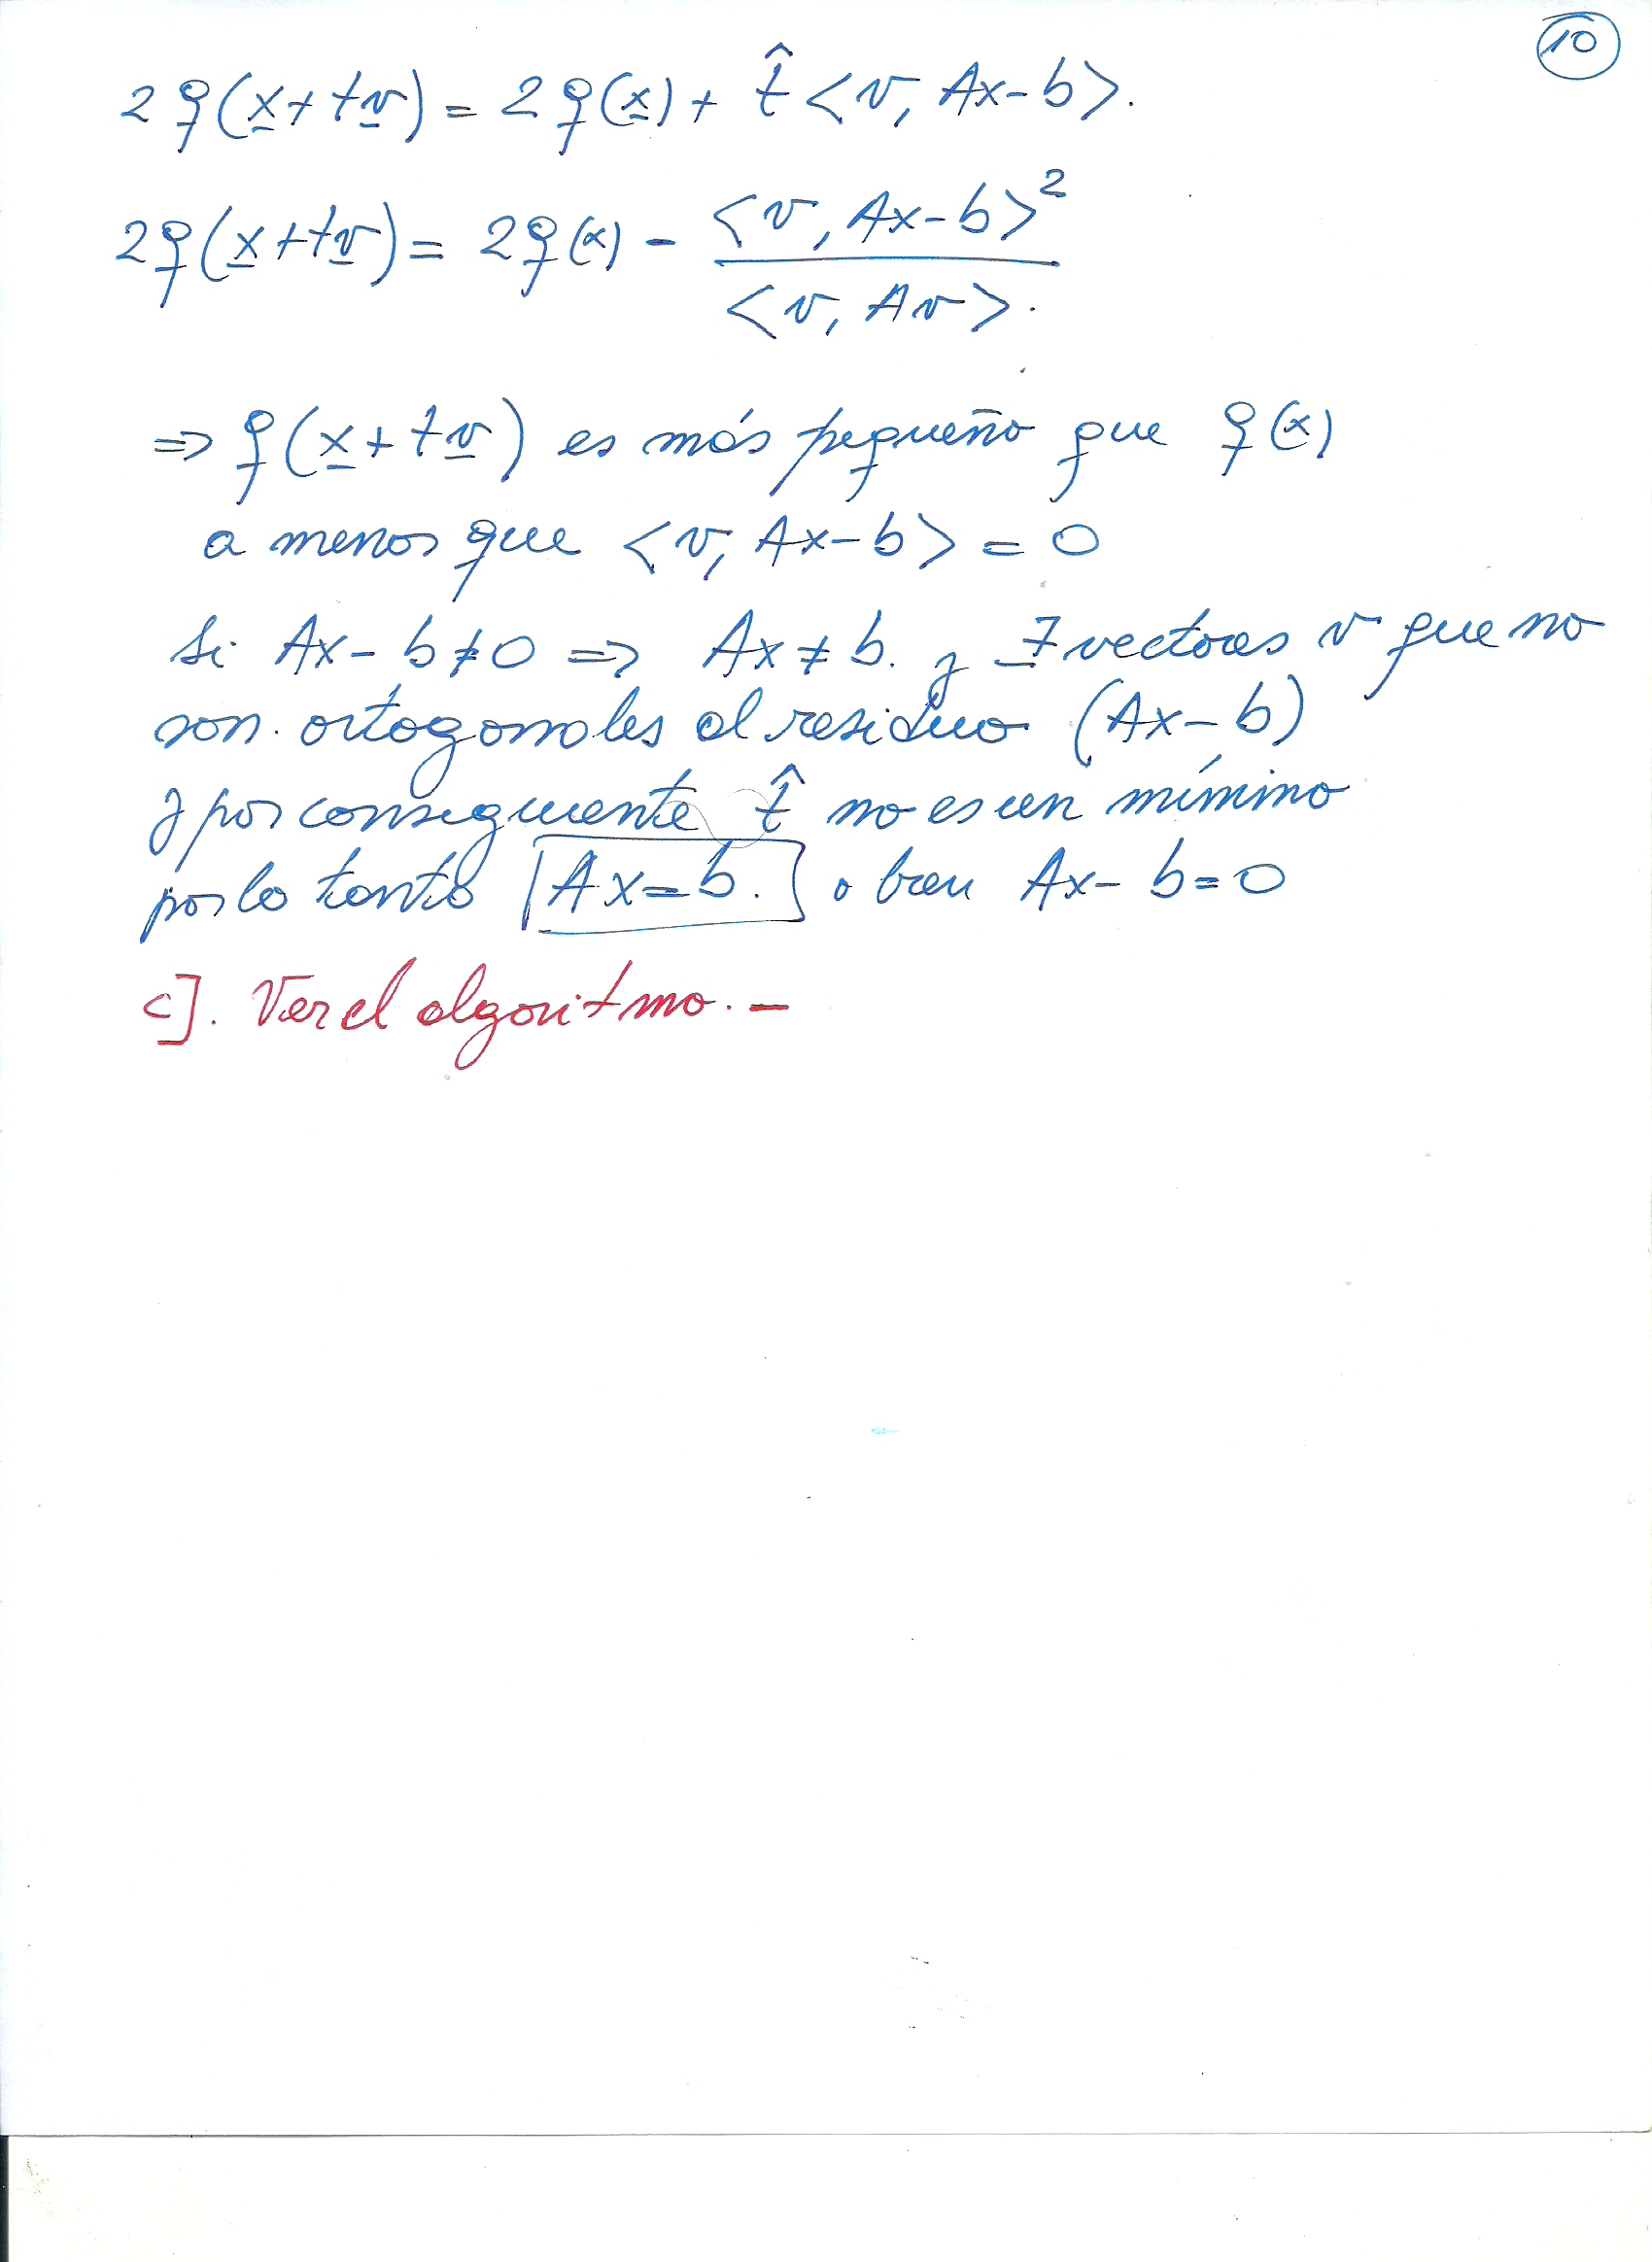 10
2q(x+tv) = 2q(x) + t̂ <v, Ax-b>.
2q(x+tv) = 2q(x) - <v, Ax-b>² / <v, Av>.
=> q(x+tv) es más pequeño que q(x)
a menos que <v, Ax-b> = 0
Si Ax-b≠0 => Ax≠b. y ∃ vectores v que no
son ortogonales al residuo (Ax-b)
y por consiguiente t̂ no es un mínimo
por lo tanto Ax=b. o bien Ax-b=0
c]. Ver el algoritmo.-